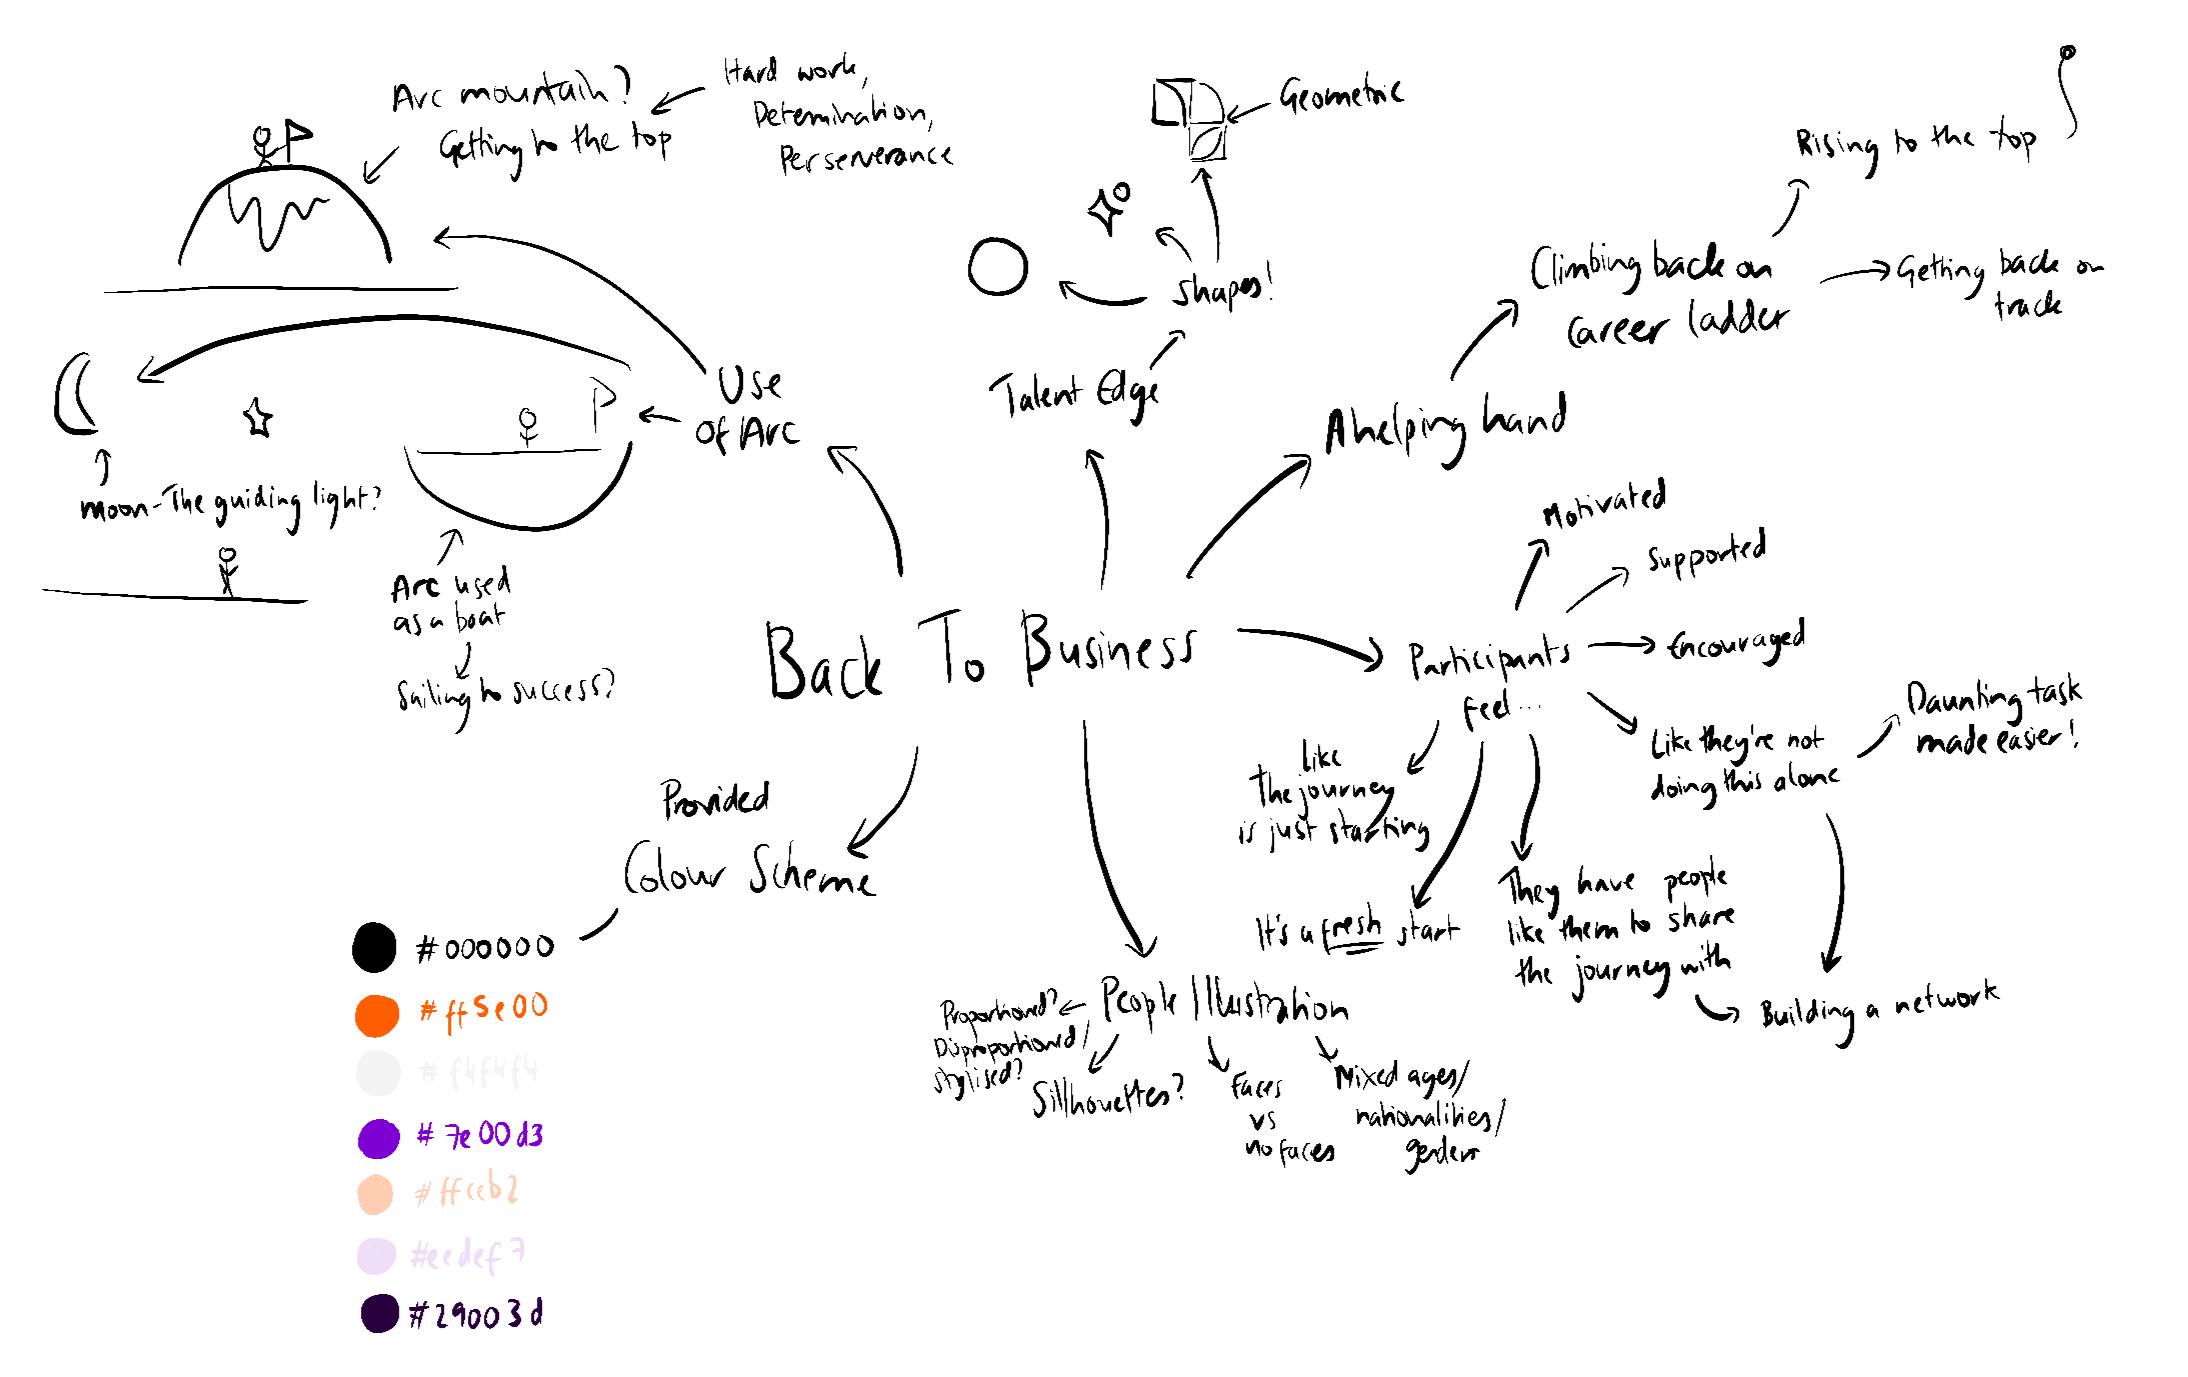 Arc mountain?
Getting to the top
Hard work,
Determination,
Perserverance
Use
of Arc
moon - The guiding light?
Arc used
as a boat
Sailing to success?
Geometric
Shapes!
Talent Edge
A helping hand
Climbing back on
career ladder
Rising to the top
Getting back on
track
Back To Business
Participants
feel...
Motivated
Supported
Encouraged
Like they're not
doing this alone
Daunting task
made easier!
like
the journey
is just starting
It's a fresh start
They have people
like them to share
the journey with
Building a network
People Illustration
Proportioned?
Disproportioned/
stylised?
Sillhouettes?
Faces
vs
no faces
Mixed ages/
nationalities/
genders
Provided
Colour Scheme
#000000
#ff5e00
#f4f4f4
#7e00d3
#ffceb2
#eedef7
#29003d